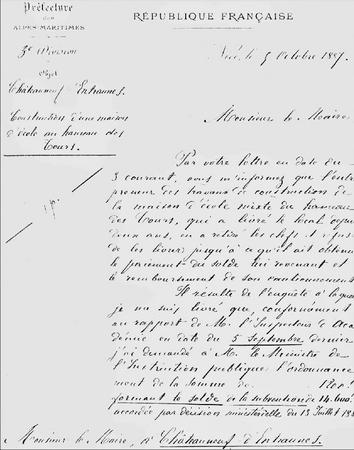 Préfecture
des
ALPES-MARITIMES
RÉPUBLIQUE FRANÇAISE
3e Division
Nice, le 5 Octobre 1887.
Objet
Châteauneuf Entraunes.
Construction d'une maison
d'école au hameau des
Tours.
Monsieur le Maire,
Par votre lettre en date du
3 courant, vous m'informez que l'entre
preneur des travaux de construction de
la maison d'école mixte du hameau
des Tours, qui a livré le local depuis
deux ans, en a retiré les clefs et refuse
de les livrer jusqu'à ce qu'il ait obtenu
le paiement du solde lui revenant et
le remboursement de son cautionnement
Il résulte de l'enquête à laquelle
je me suis livré que, conformément
au rapport de M. l'Inspecteur d'Aca
démie en date du 5 Septembre dernier
j'ai demandé à M. le Ministre de
l'Instruction publique l'ordonnance
ment de la somme de
formant le solde de la subvention de
accordée par décision ministérielle du 13 Juillet 188
Monsieur le Maire, à Châteauneuf d'Entraunes.